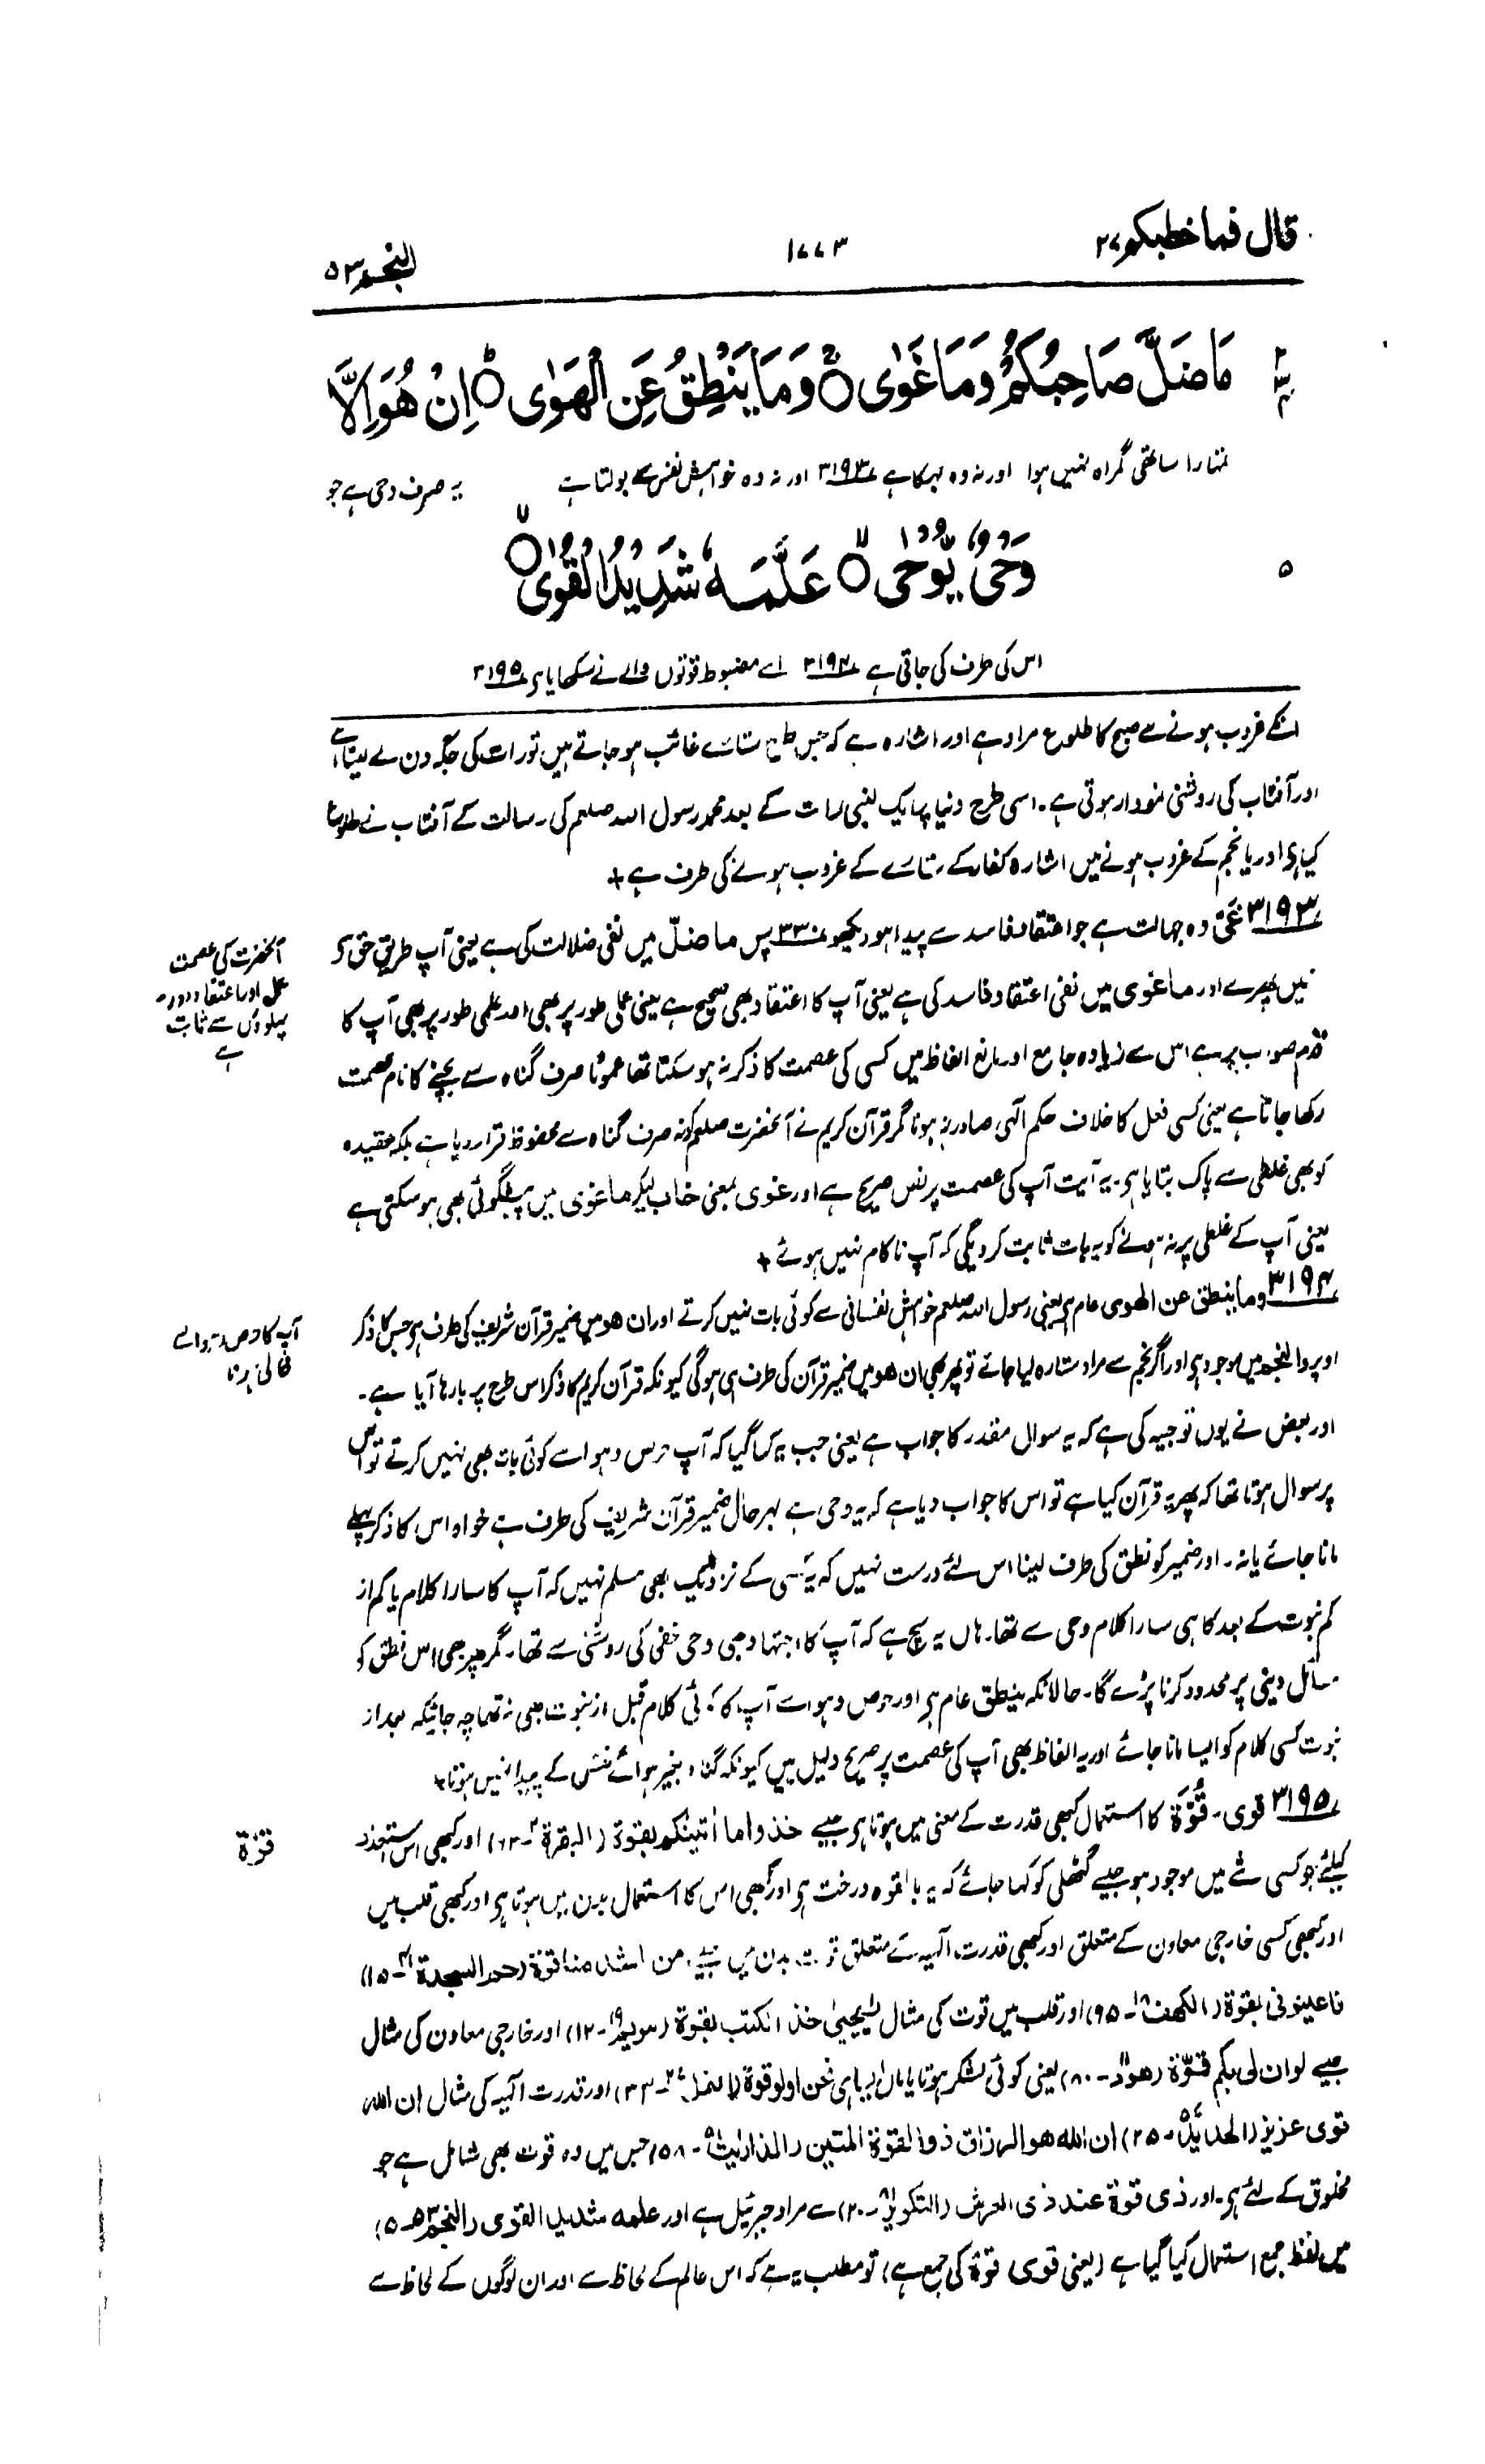 قال فما خطبكم ۲۷
۱۷۷۳
النجم ۵۳
مَا ضَلَّ صَاحِبُكُمْ وَمَا غَوٰى ۝ وَمَا يَنْطِقُ عَنِ الْهَوٰى ۝ اِنْ هُوَ اِلَّا
تمہارا ساتھی گمراہ نہیں ہوا اور نہ وہ بہکا ہے ۳۱۹۳ اور نہ وہ خواہش نفس سے بولتا ہے یہ صرف وحی ہے جو
وَحْىٌ يُّوْحٰى ۝ عَلَّمَهٗ شَدِيْدُ الْقُوٰى ۝
۵
اس کی طرف کی جاتی ہے ۳۱۹۴ اسے مضبوط قوتوں والے نے سکھایا ہے ۳۱۹۵
انکے غروب ہونے سے صبح کا طلوع مراد ہے اور اشارہ ہے کہ جس طرح ستارے غائب ہو جاتے ہیں تو رات کی جگہ دن لے لیتا ہے
اور آفتاب کی روشنی نمودار ہوتی ہے۔ اسی طرح دنیا پر ایک لنبی رات کے بعد محمد رسول اللہ صلعم کی رسالت کے آفتاب نے طلوع
کیا ہے اور یا نجم کے غروب ہونے میں اشارہ کفار کے ستارے کے غروب ہونے کی طرف ہے +
۳۱۹۳ غَیّ وہ جہالت ہے جو اعتقاد فاسد سے پیدا ہو دیکھو ۳۳۰ پس ما ضلّ میں نفی ضلالت کی ہے یعنی آپ طریق حق سے
نہیں پھرے اور ما غوی میں نفی اعتقاد فاسد کی ہے یعنی آپ کا اعتقاد بھی صحیح ہے یعنی عملی طور پر بھی اور علمی طور پر بھی آپ کا
قدم صواب پر ہے اس سے زیادہ جامع اور مانع الفاظ میں کسی کی عصمت کا ذکر نہ ہو سکتا تھا عموماً صرف گناہ سے بچنے کا نام عصمت
رکھا جاتا ہے یعنی کسی فعل کا خلاف حکم الٰہی صادر نہ ہونا مگر قرآن کریم نے آنحضرت صلعم کو نہ صرف گناہ سے محفوظ قرار دیا ہے بلکہ عقیدہ
کو بھی غلطی سے پاک بتایا ہے۔ یہ آیت آپ کی عصمت پر نص صریح ہے اور غوی بمعنی خاب لیکر ما غوی میں پیشگوئی بھی ہو سکتی ہے
یعنی آپ کے غلطی پر نہ ہونے کو یہ بات ثابت کر دیگی کہ آپ ناکام نہیں ہوئے +
آنحضرت کی عصمت
عمل اور اعتقاد دونوں
پہلوؤں سے ثابت
ہے
۳۱۹۴ وما ینطق عن الھوی عام ہے یعنی رسول اللہ صلعم خواہش نفسانی سے کوئی بات نہیں کرتے اور ان ھو میں ضمیر قرآن شریف کی طرف ہے جس کا ذکر
اوپر والنجم میں موجود ہے اور اگر نجم سے مراد ستارہ لیا جائے تو پھر بھی ان ھو میں ضمیر قرآن کی طرف ہی ہو گی کیونکہ قرآن کریم کا ذکر اس طرح پر بارہا آیا ہے۔
اور بعض نے یوں توجیہ کی ہے کہ یہ سوال مقدر کا جواب ہے یعنی جب یہ کہا گیا کہ آپ حرص و ہوا سے کوئی بات بھی نہیں کرتے تو اس
پر سوال ہوتا تھا کہ پھر یہ قرآن کیا ہے تو اس کا جواب دیا ہے کہ یہ وحی ہے بہرحال ضمیر قرآن شریف کی طرف ہے خواہ اس کا ذکر پہلے
مانا جائے یا نہ۔ اور ضمیر کو نطق کی طرف لینا اس لئے درست نہیں کہ یہ کسی کے نزدیک بھی مسلم نہیں کہ آپ کا سارا کلام یا کم از
کم نبوت کے بعد کا ہی سارا کلام وحی سے تھا۔ ہاں یہ سچ ہے کہ آپ کا اجتہاد بھی وحی خفی کی روشنی سے تھا۔ مگر پھر بھی اس نطق کو
مسائل دینی پر محدود کرنا پڑے گا۔ حالانکہ ینطق عام ہے اور حرص و ہوا سے آپ کا کوئی کلام قبل از نبوت بھی نہ تھا چہ جائیکہ بعد از
نبوت کسی کلام کو ایسا مانا جائے اور یہ الفاظ بھی آپ کی عصمت پر صریح دلیل ہیں کیونکہ گناہ بغیر ہوائے نفس کے پیدا نہیں ہوتا +
آپ کا حرص و ہوا سے
خالی ہونا
۳۱۹۵ قوی۔ قُوَّۃ کا استعمال کبھی قدرت کے معنی میں ہوتا ہے جیسے خذوا ما اٰتینٰکم بقوۃ (البقرۃ ۲۔۶۳) اور کبھی اس استعداد
کیلئے جو کسی شے میں موجود ہو جیسے گٹھلی کو کہا جائے کہ یہ بالقوہ درخت ہے اور کبھی اس کا استعمال بدن میں ہوتا ہے اور کبھی قلب میں
اور کبھی کسی خارجی معاون کے متعلق اور کبھی قدرت الٰہیہ کے متعلق قوت بدن میں جیسے من اشد منا قوۃ (حم السجدۃ ۴۱۔۱۵)
فاعینونی بقوۃ (الکہف ۱۸۔۹۵) اور قلب میں قوت کی مثال یٰیحیٰی خذ الکتب بقوۃ (مریم ۱۹۔۱۲) اور خارجی معاون کی مثال
جیسے لو ان لی بکم قوّۃ (ھود ۱۱۔۸۰) یعنی کوئی لشکر ہوتا یا مال ایسا ہی نحن اولوا قوۃ (النمل ۲۷۔۳۳) اور قدرت الٰہیہ کی مثال ان اللہ
قوی عزیز (الحدید ۵۷۔۲۵) ان اللہ ھو الرزاق ذوالقوۃ المتین (الذاریات ۵۱۔۵۸) جس میں وہ قوت بھی شامل ہے جو
مخلوق کے لئے ہے۔ اور ذی قوۃ عند ذی العرش (التکویر ۸۱۔۲۰) سے مراد جبرئیل ہے اور علمه شدید القوی (النجم ۵۳۔۵)
میں لفظ جمع استعمال کیا گیا ہے (یعنی قوی قوۃ کی جمع ہے) تو مطلب یہ ہے کہ اس عالم کے لحاظ سے اور ان لوگوں کے لحاظ سے
قوّۃ